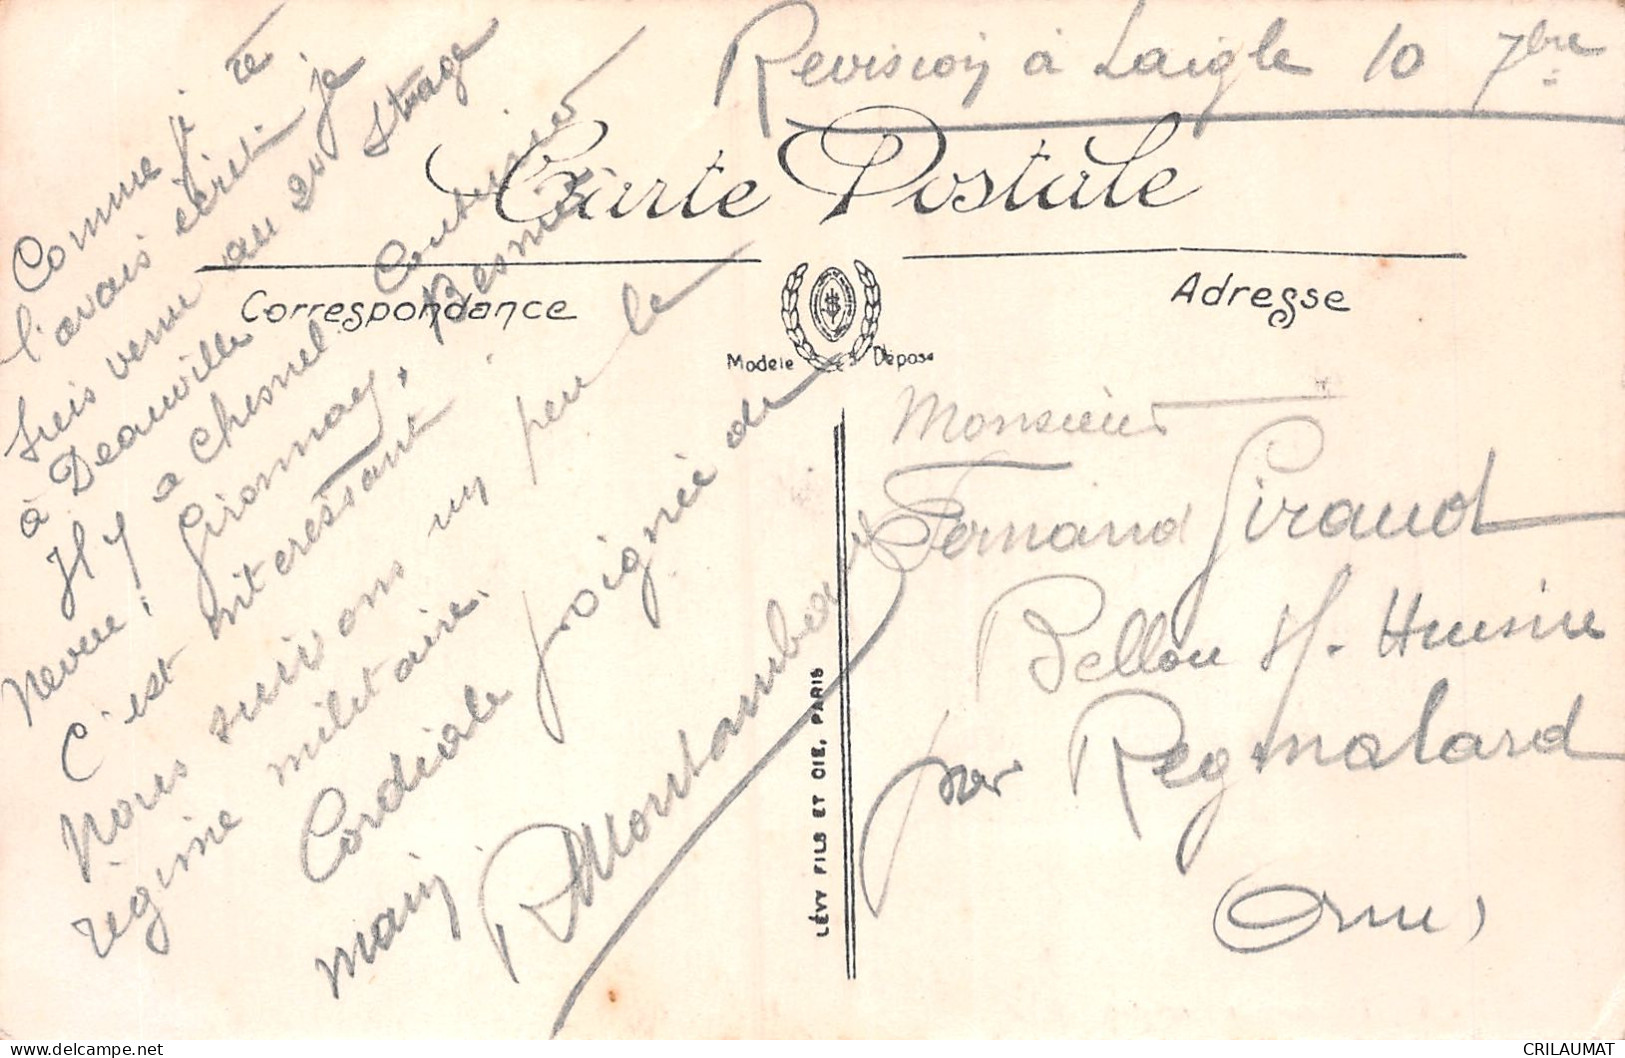 Revision à Laigle 10 7bre
Carte Postale
Correspondance
Adresse
Modèle Déposé
Comme je te
l'avais écrit je
suis venu au 2e Stage
à Deauville
Il y a Chesnel. Couturier
Neveu, Gironnay, Besnier
C'est intéressant
Nous suivons un peu le
régime militaire.
Cordiale poignée de
main
RMontambault
Monsieur
Fernand Giraud
Bellou s/. Huisne
par Regmalard
Orne
LÉVY FILS ET CIE, PARIS
CRILAUMAT